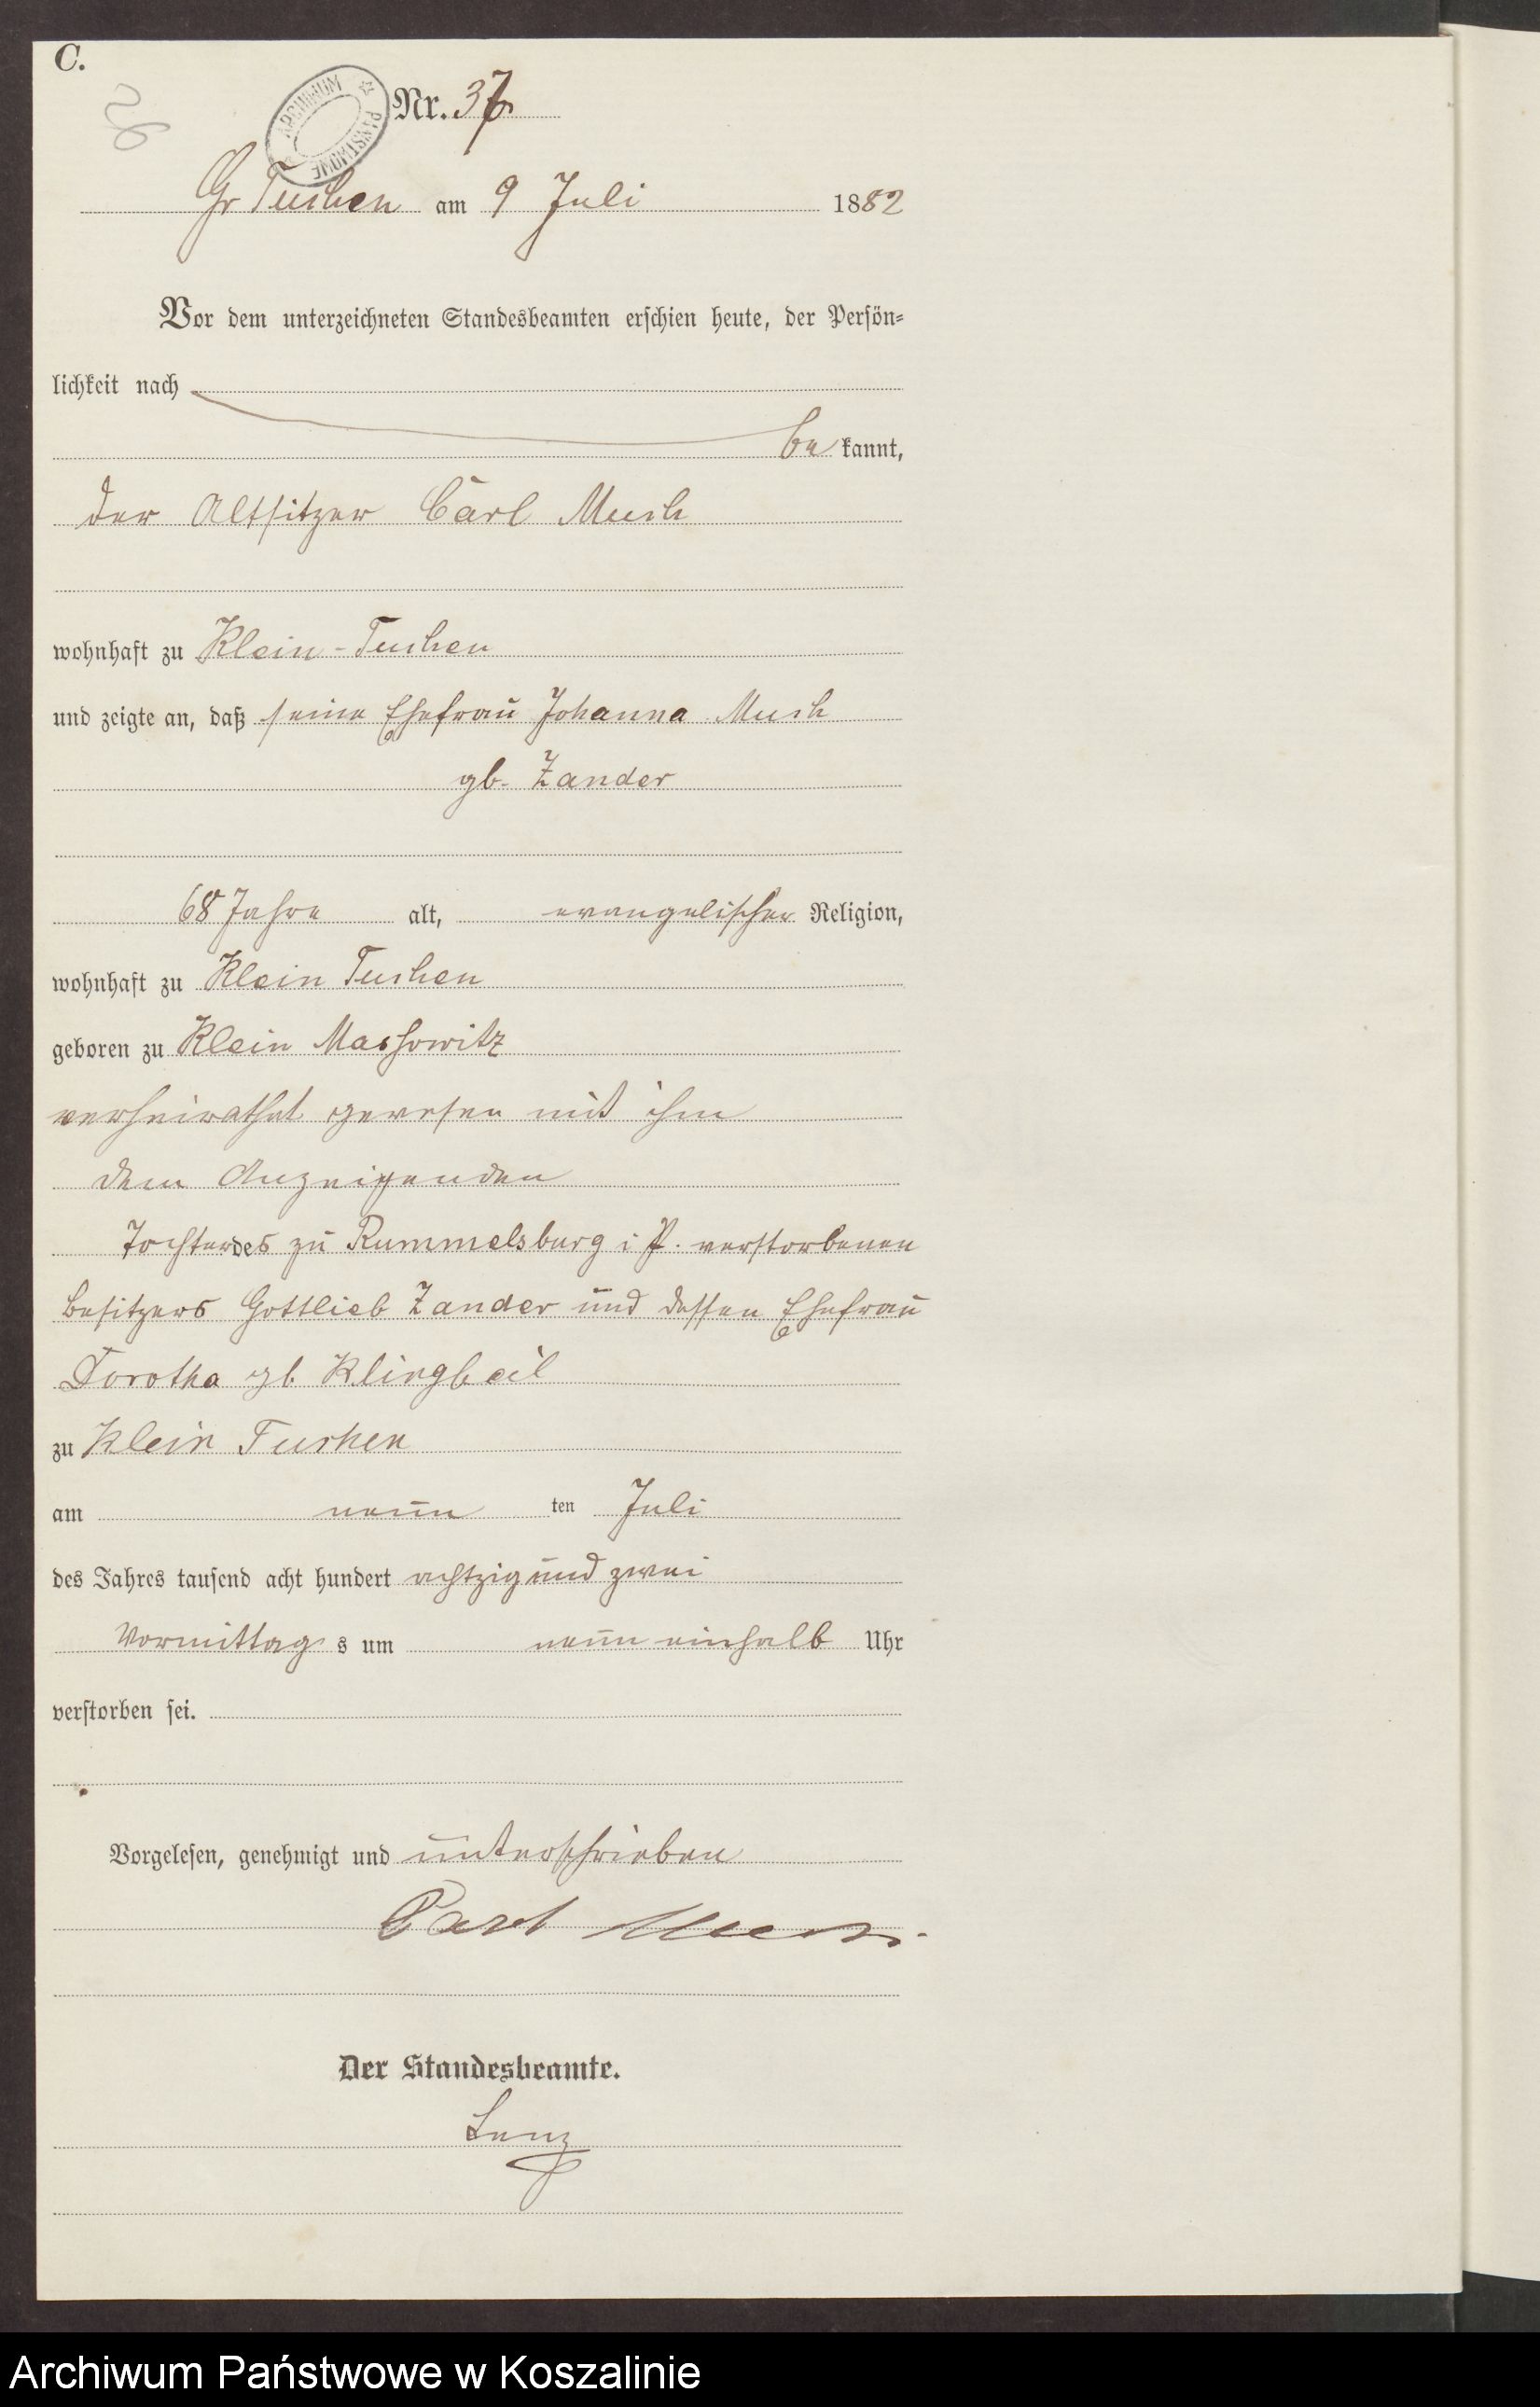 C.
26
ARCHIWUM PAŃSTWOWE
Nr. 37
Gr Tuchen am 9 Juli 1882
Vor dem unterzeichneten Standesbeamten erschien heute, der Persön=
lichkeit nach
be kannt,
der Altsitzer Carl Much
wohnhaft zu Klein-Tuchen
und zeigte an, daß seine Ehefrau Johanna Much
gb. Zander
68 Jahre alt, evangelischer Religion,
wohnhaft zu Klein Tuchen
geboren zu Klein Massowitz
verheirathet gewesen mit ihm
dem Anzeigenden
Tochter des zu Rummelsburg i P. verstorbenen
Besitzers Gottlieb Zander und dessen Ehefrau
Dorotha gb. Klingbeil
zu Klein Tuchen
am neun ten Juli
des Jahres tausend acht hundert achtzig und zwei
Vormittag s um neun einhalb Uhr
verstorben sei.
Vorgelesen, genehmigt und unterschrieben
Carl Much.
Der Standesbeamte.
Lenz
Archiwum Państwowe w Koszalinie